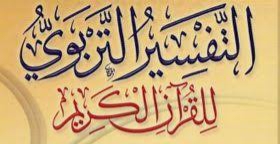 التَّفْسِيرُ التَّرْبَوِيُّ
لِلْقُرْآنِ الْكَرِيمِ